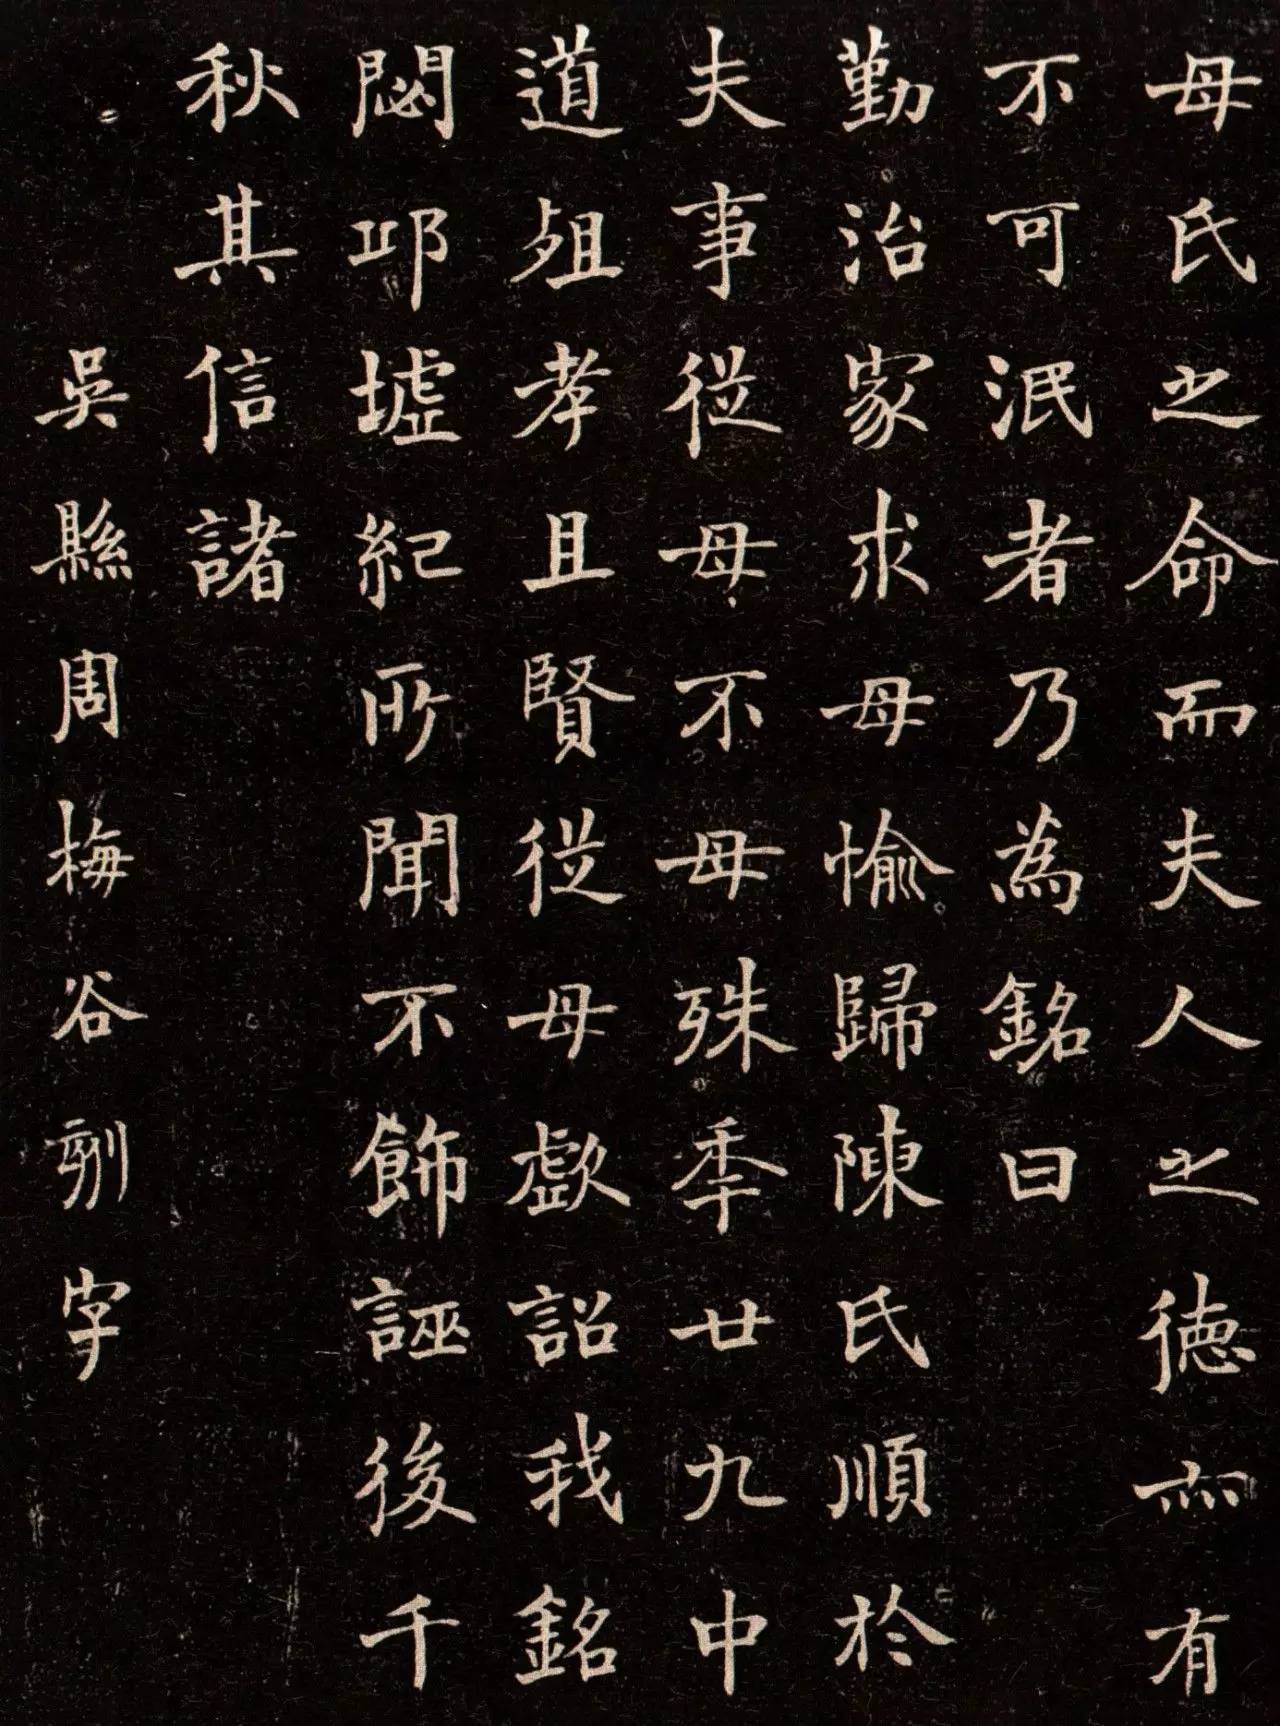 母氏之命而夫人之德亦有
不可泯者乃為銘曰
勤治家求母愉歸陳氏順於
夫事從母不母殊年廿九中
道殂孝且賢從母歔詔我銘
閟邛墟紀所聞不飾誣後千
秋其信諸
吳縣周梅谷刻字